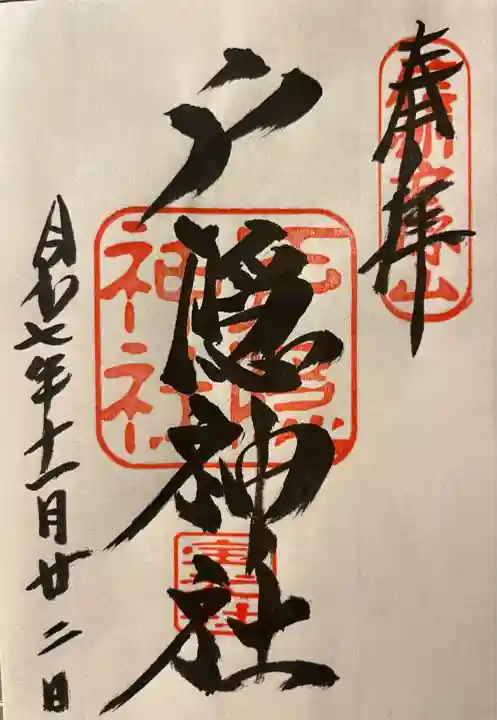 奉拝
戸隠神社
戸隠
神社
宝光社
令和七年十一月廿二日